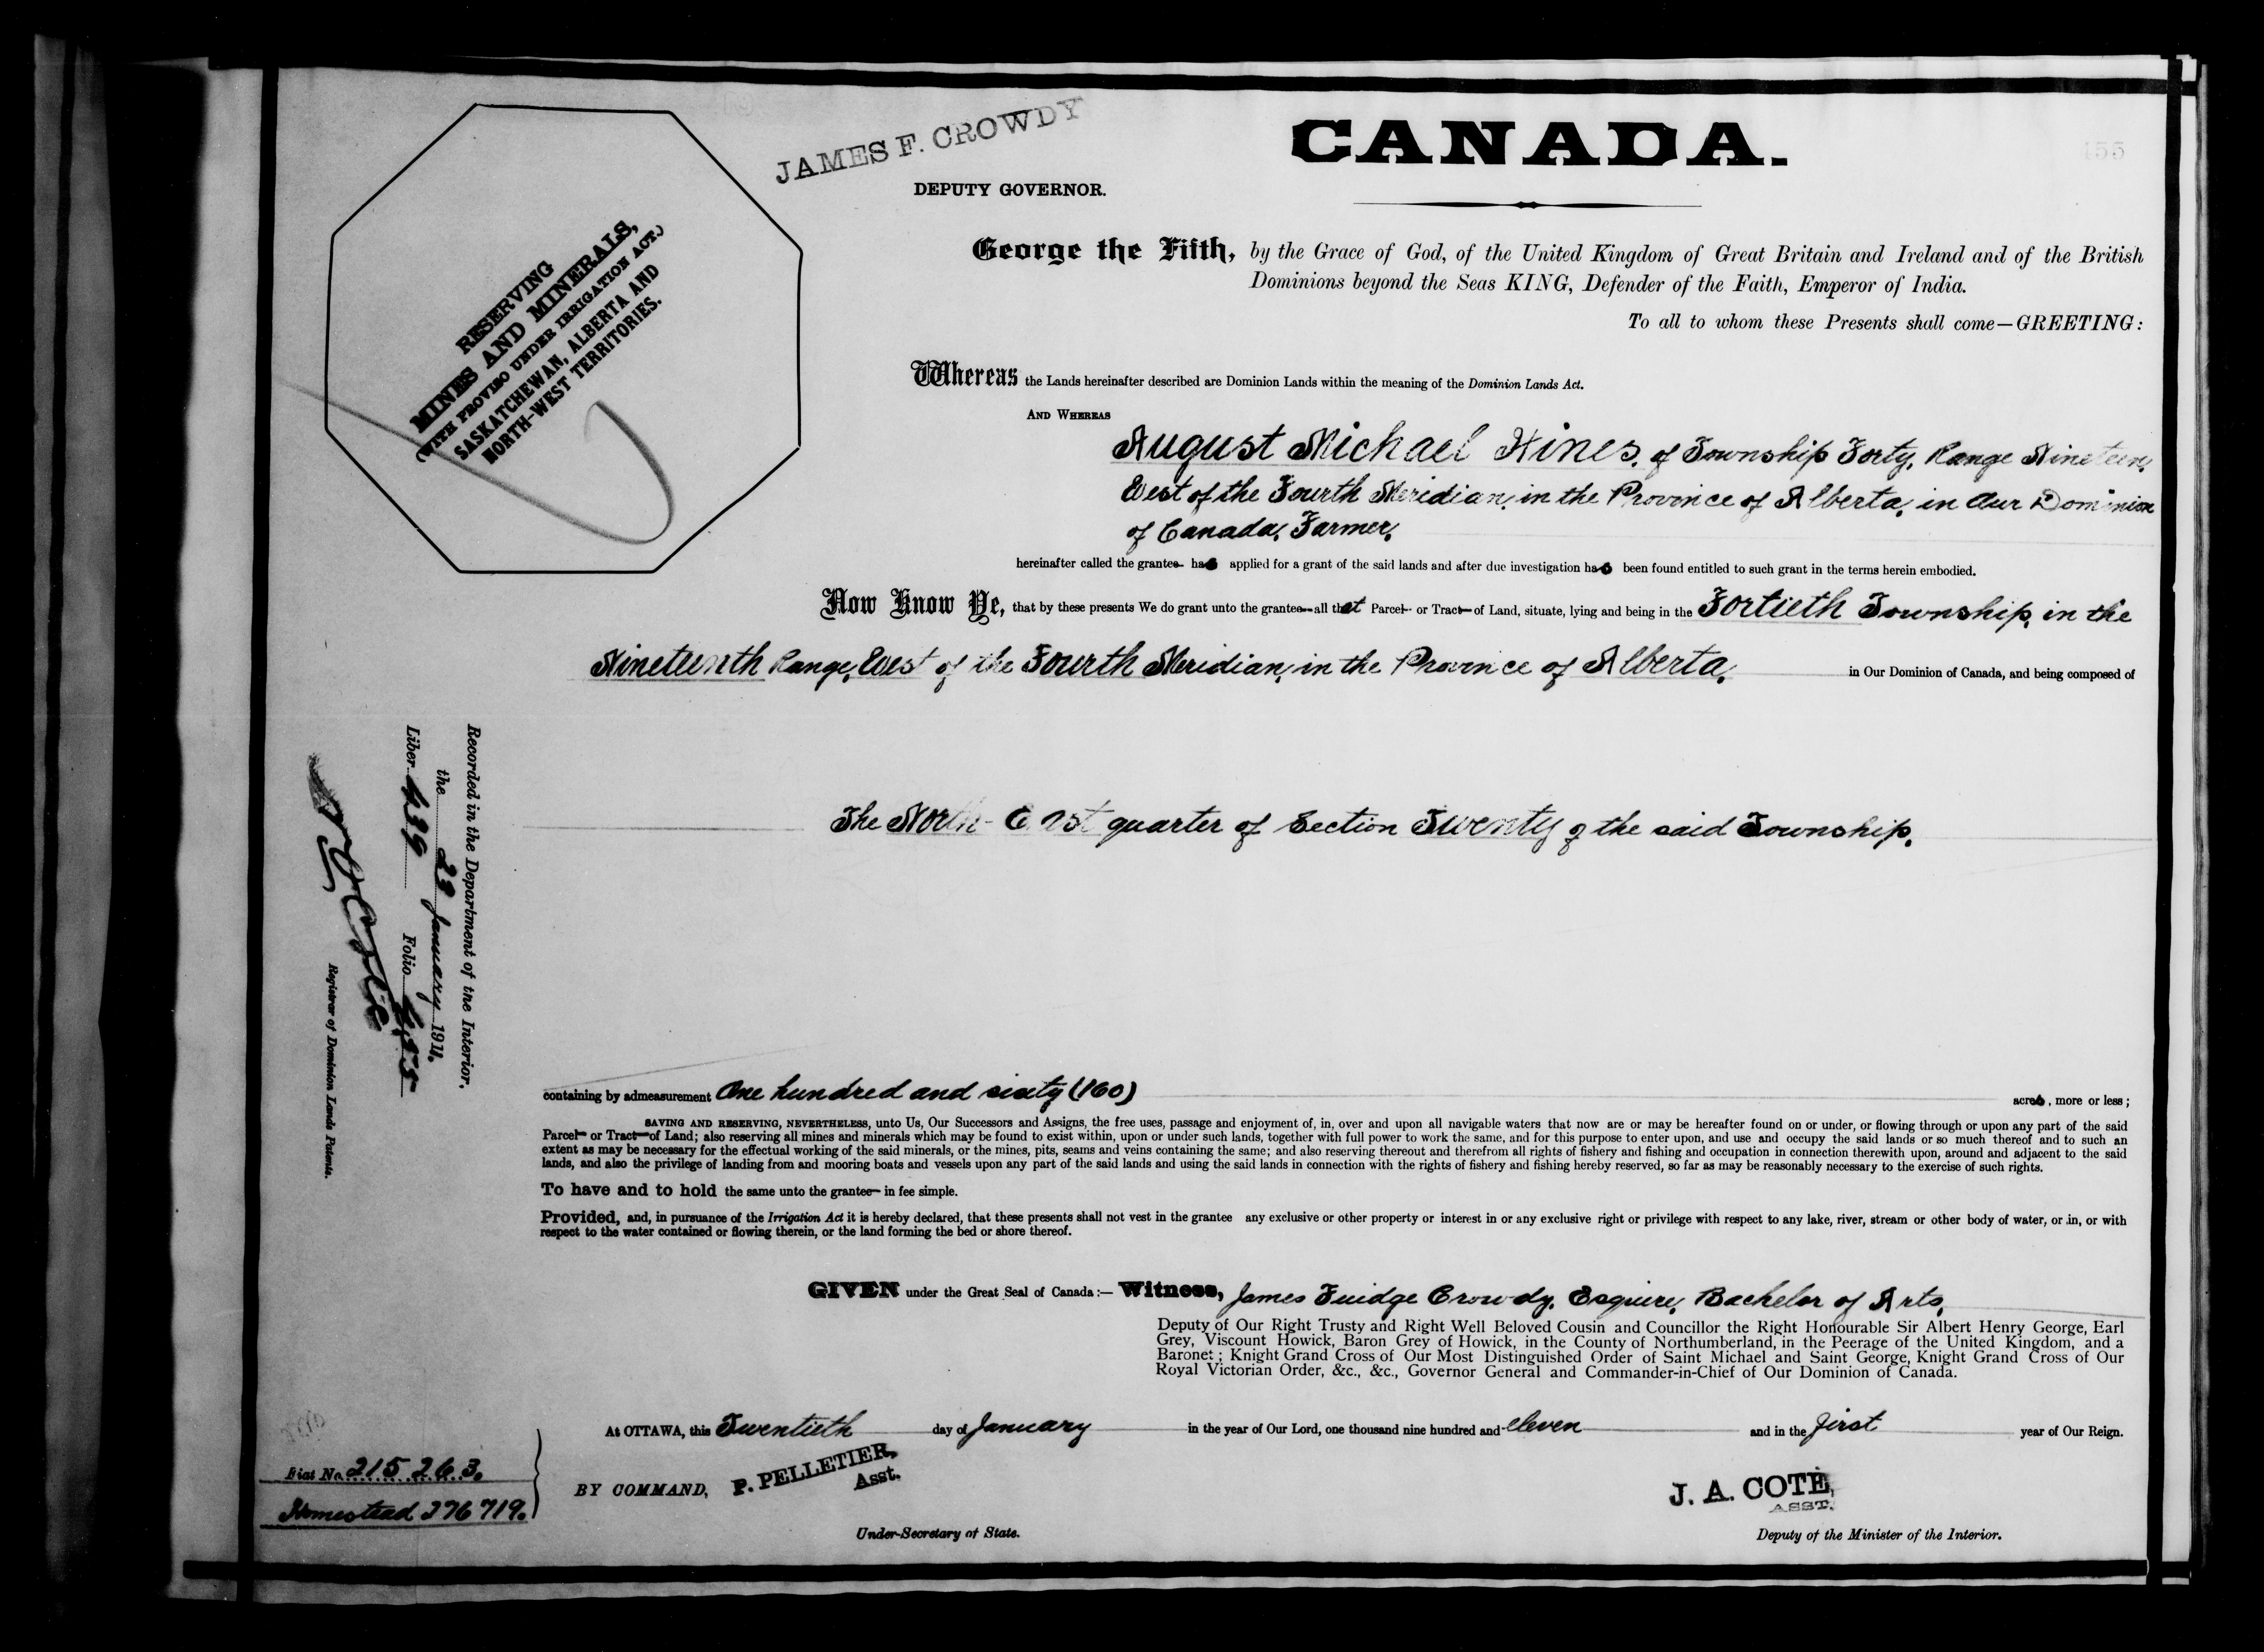 JAMES F. CROWDY
DEPUTY GOVERNOR.
CANADA.
155
RESERVING
MINES AND MINERALS,
(WITH PROVISO UNDER IRRIGATION ACT.)
SASKATCHEWAN, ALBERTA AND
NORTH-WEST TERRITORIES.
George the Fifth, by the Grace of God, of the United Kingdom of Great Britain and Ireland and of the British
Dominions beyond the Seas KING, Defender of the Faith, Emperor of India.
To all to whom these Presents shall come—GREETING:
Whereas the Lands hereinafter described are Dominion Lands within the meaning of the Dominion Lands Act.
AND WHEREAS
August Michael Hines, of Township Forty, Range Nineteen,
West of the Fourth Meridian, in the Province of Alberta, in Our Dominion
of Canada, Farmer,
hereinafter called the grantee has applied for a grant of the said lands and after due investigation has been found entitled to such grant in the terms herein embodied.
Now Know Ye, that by these presents We do grant unto the grantee all that Parcel or Tract of Land, situate, lying and being in the Fortieth Township, in the
Nineteenth Range, West of the Fourth Meridian, in the Province of Alberta, in Our Dominion of Canada, and being composed of
The North-East quarter of Section Twenty of the said Township.
Recorded in the Department of the Interior,
the 23 January 1911.
Liber 439 Folio 455
Registrar of Dominion Lands Patents.
containing by admeasurement One hundred and sixty (160) acres, more or less;
SAVING AND RESERVING, NEVERTHELESS, unto Us, Our Successors and Assigns, the free uses, passage and enjoyment of, in, over and upon all navigable waters that now are or may be hereafter found on or under, or flowing through or upon any part of the said
Parcel or Tract of Land; also reserving all mines and minerals which may be found to exist within, upon or under such lands, together with full power to work the same, and for this purpose to enter upon, and use and occupy the said lands or so much thereof and to such an
extent as may be necessary for the effectual working of the said minerals, or the mines, pits, seams and veins containing the same; and also reserving thereout and therefrom all rights of fishery and fishing and occupation in connection therewith upon, around and adjacent to the said
lands, and also the privilege of landing from and mooring boats and vessels upon any part of the said lands and using the said lands in connection with the rights of fishery and fishing hereby reserved, so far as may be reasonably necessary to the exercise of such rights.
To have and to hold the same unto the grantee in fee simple.
Provided, and, in pursuance of the Irrigation Act it is hereby declared, that these presents shall not vest in the grantee any exclusive or other property or interest in or any exclusive right or privilege with respect to any lake, river, stream or other body of water, or in, or with
respect to the water contained or flowing therein, or the land forming the bed or shore thereof.
GIVEN under the Great Seal of Canada:— Witness, James Fuidge Crowdy, Esquire, Bachelor of Arts,
Deputy of Our Right Trusty and Right Well Beloved Cousin and Councillor the Right Honourable Sir Albert Henry George, Earl
Grey, Viscount Howick, Baron Grey of Howick, in the County of Northumberland, in the Peerage of the United Kingdom, and a
Baronet; Knight Grand Cross of Our Most Distinguished Order of Saint Michael and Saint George, Knight Grand Cross of Our
Royal Victorian Order, &c., &c., Governor General and Commander-in-Chief of Our Dominion of Canada.
At OTTAWA, this Twentieth day of January in the year of Our Lord, one thousand nine hundred and eleven and in the first year of Our Reign.
Fiat No. 215263.
Homestead 276719.
BY COMMAND, P. PELLETIER,
Asst.
Under-Secretary of State.
J. A. COTE,
ASST.
Deputy of the Minister of the Interior.